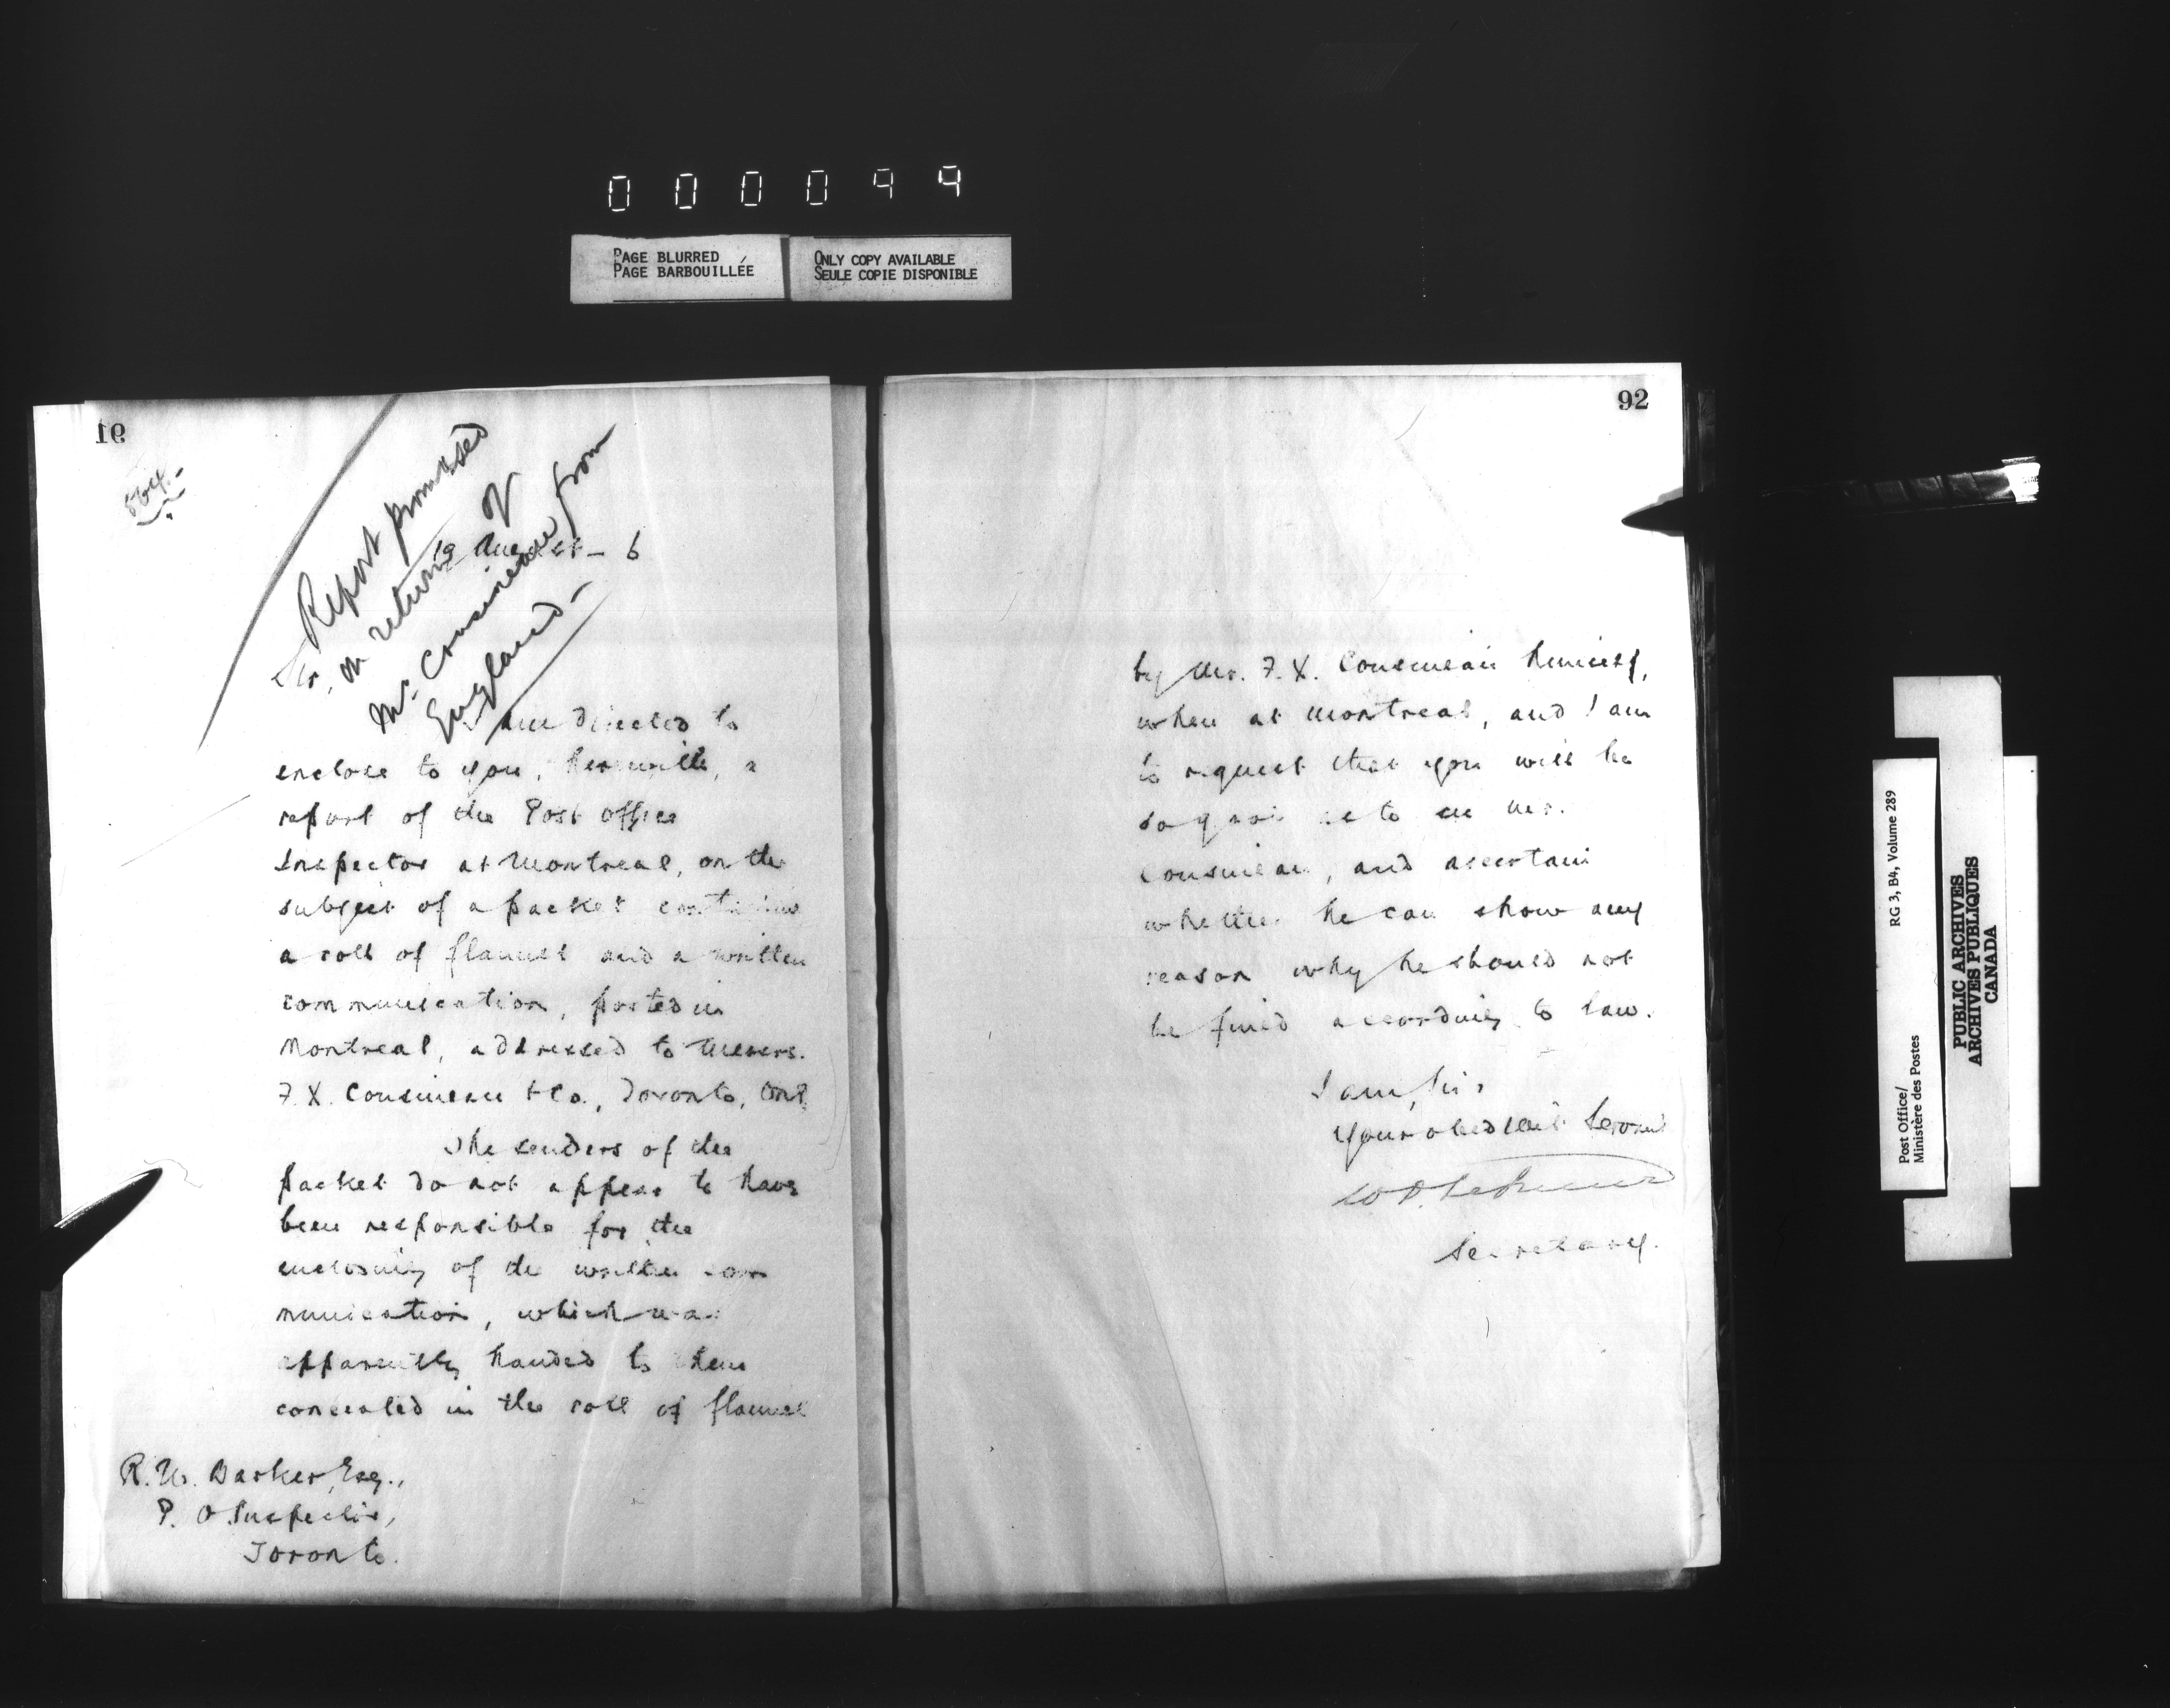 000099
PAGE BLURRED
PAGE BARBOUILLÉE
ONLY COPY AVAILABLE
SEULE COPIE DISPONIBLE
91
564.-
Report promised
on return of
Mr. Cousineau from
England-
19 August - 6
Sir,
I am directed to
enclose to you, herewith, a
report of the Post Office
Inspector at Montreal, on the
subject of a packet containing
a roll of flannel and a written
communication, posted in
Montreal, addressed to Messrs.
F. X. Cousineau & Co., Toronto, Ont.
The senders of the
packet do not appear to have
been responsible for the
enclosing of the written com
munication, which was
apparently handed to them
concealed in the roll of flannel
R. W. Barker, Esq.,
P. O. Inspector,
Toronto.
92
by Mr. F. X. Cousineau himself,
when at Montreal, and I am
to request that you will be
so good as to see Mr.
Cousineau, and ascertain
whether he can show any
reason why he should not
be fined according to law.
I am, Sir,
Your obedient Servant
Secretary.
RG 3, B4, Volume 289
Post Office/
Ministère des Postes
PUBLIC ARCHIVES
ARCHIVES PUBLIQUES
CANADA